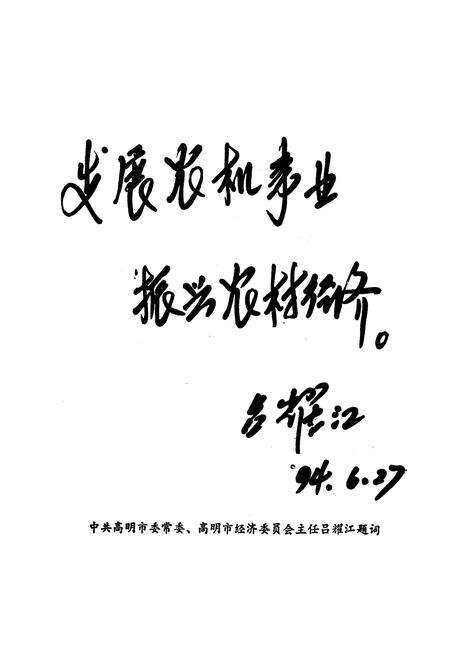 发展农机事业
振兴农村经济。
吕耀江
94.6.27
中共高明市委常委、高明市经济委员会主任吕耀江题词